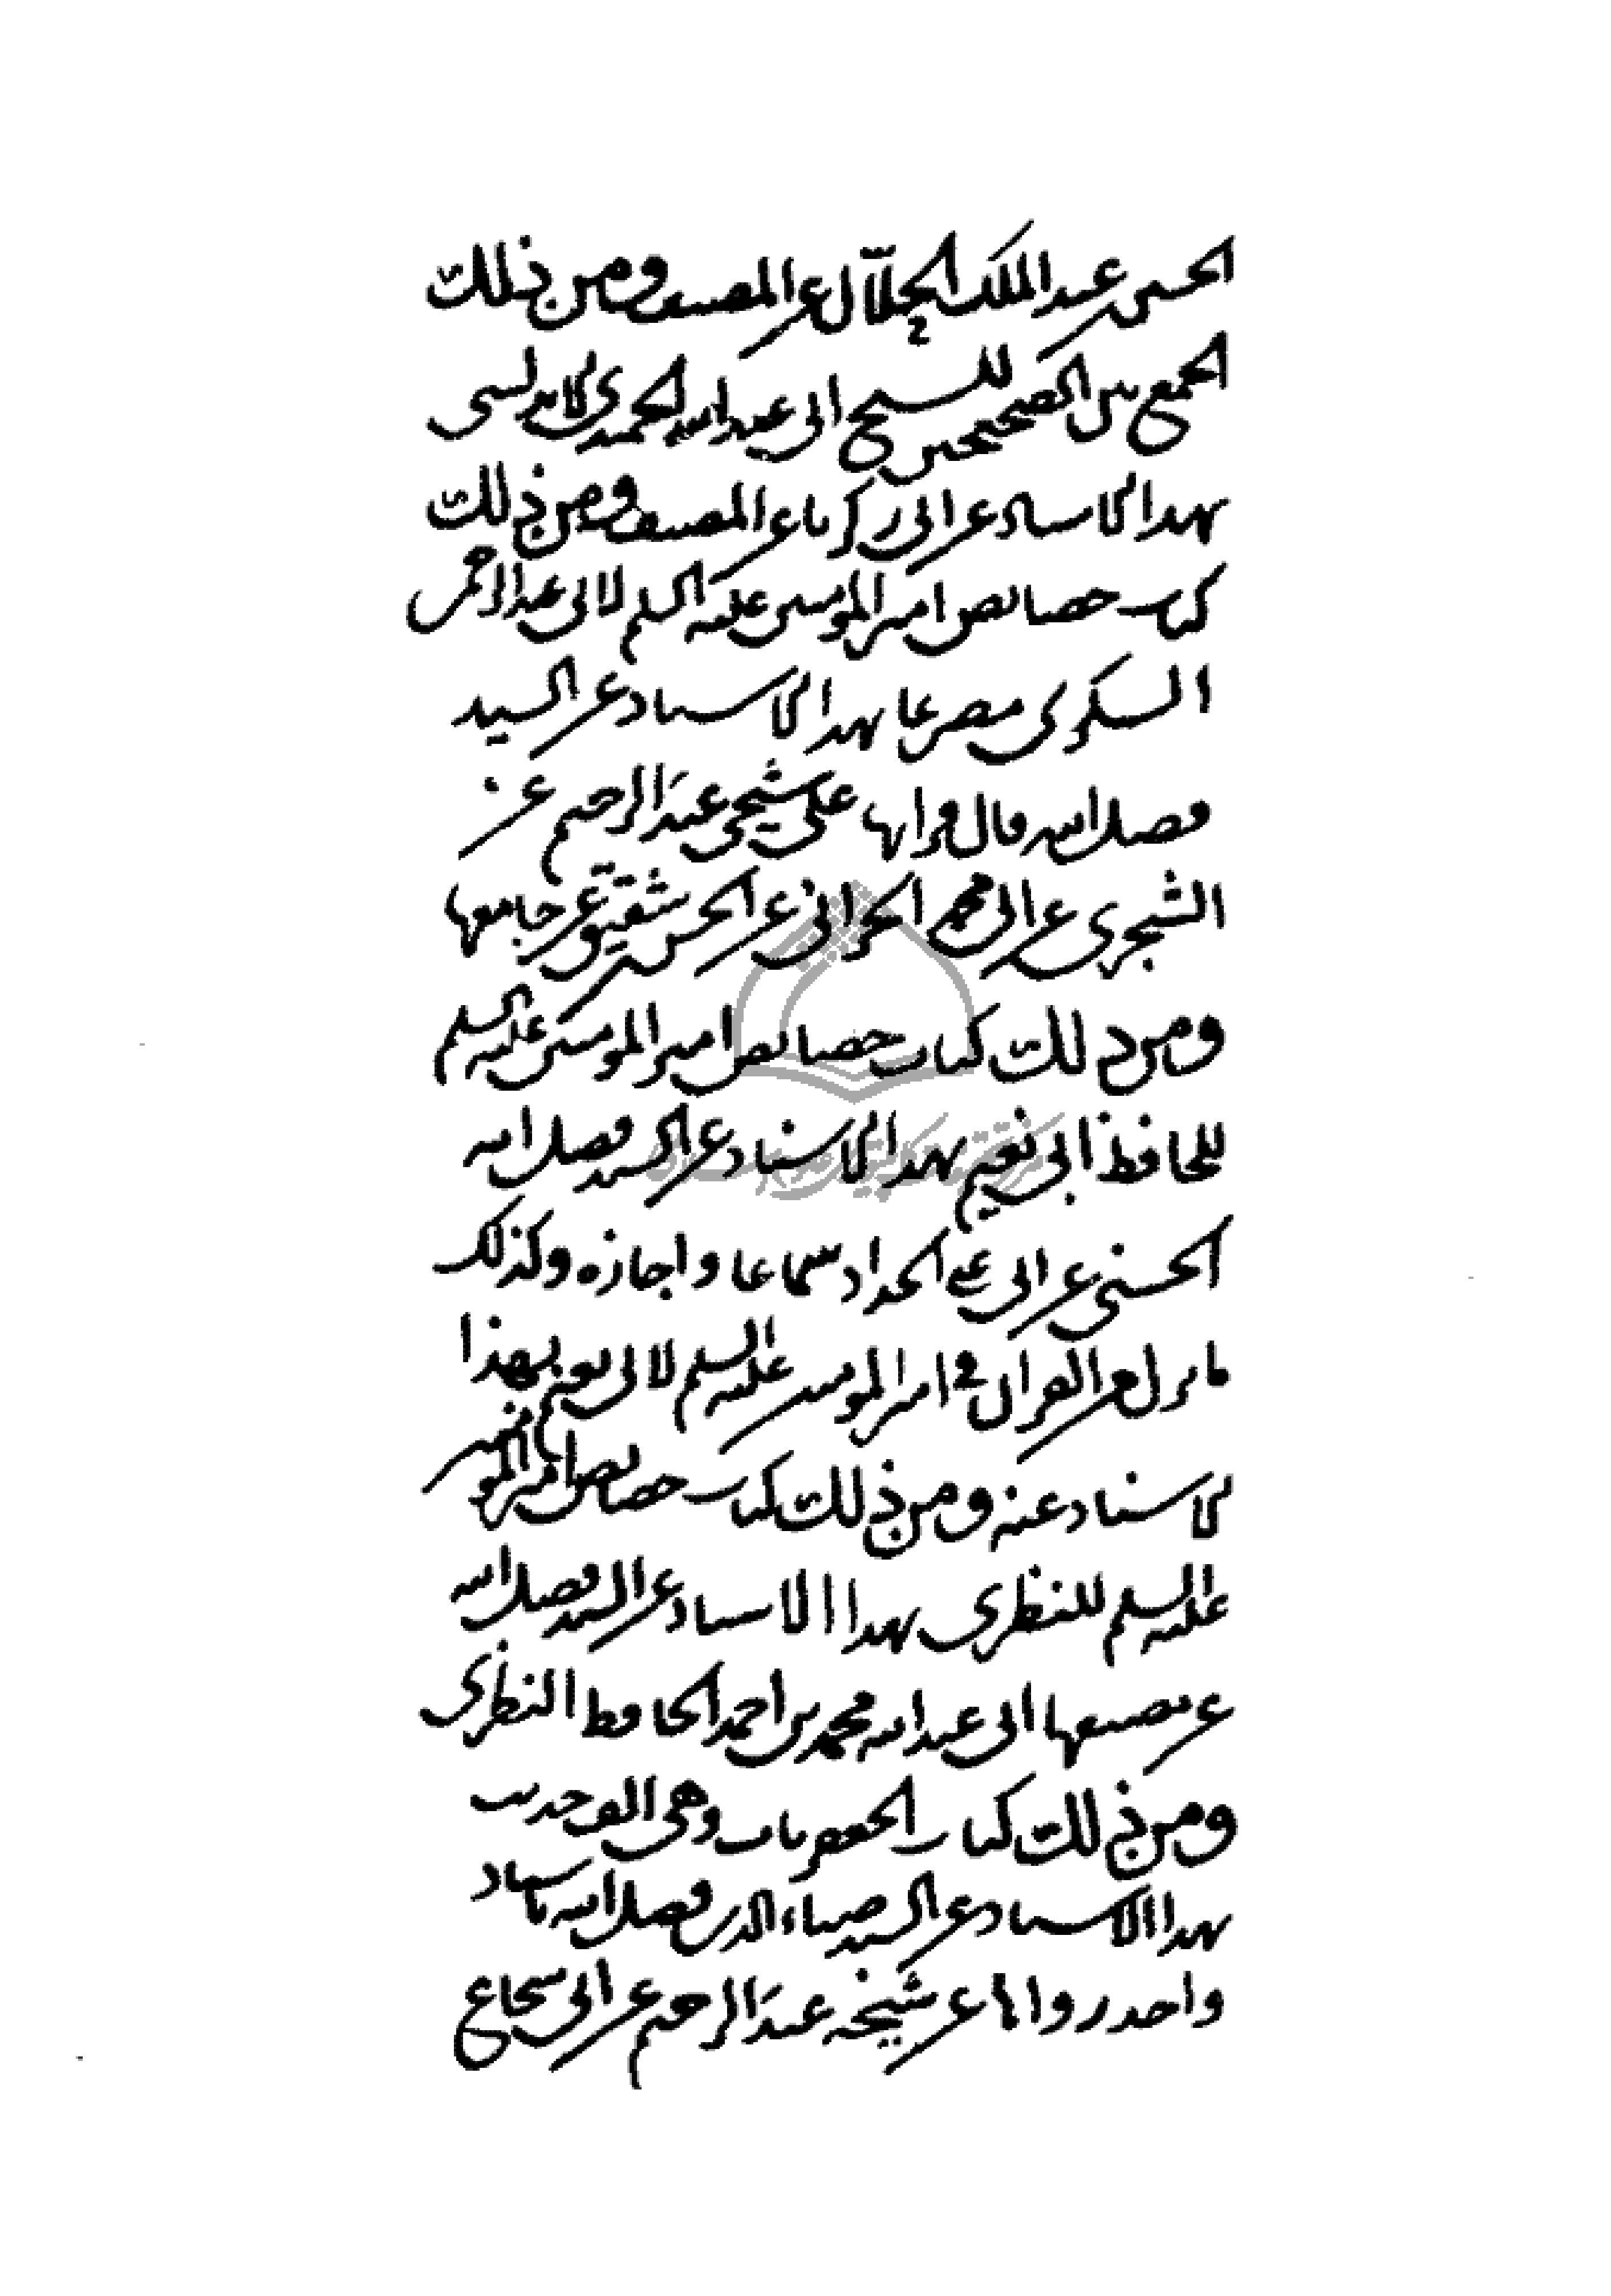 الحسين عبد الملك الخلّال عن المصنف ومن ذلك
الجمع بين الصحيحين للشيخ ابى عبد الله الحميدى الاندلسى
بهذا الاسناد عن ابى زكريا عن المصنف ومن ذلك
كتاب خصائص امير المومنين عليه السلم لابى عبد الرحمن
السكرى بهذا الاسناد عن السيد
فضل الله قال قراتها على شيخى عبد الرحيم عن
الشجرى عن ابى محمد الحرانى عن الحسن شقيق عن جامعها
ومن ذلك كتاب خصائص امير المومنين عليه السلم
للحافظ ابى نعيم بهذا الاسناد عن السيد فضل الله
الحسنى عن ابى على الحداد سماعا واجازه وكذلك
ما نزل من القران فى امير المومنين عليه السلم لابى نعيم بهذا
الاسناد عنه ومن ذلك كتاب خصائص امير المومنين
عليه السلم للنطنزى بهذا الاسناد عن السيد فضل الله
عن مصنفها ابى عبد الله محمد بن احمد الحافظ النطنزى
ومن ذلك كتاب الجعفريات وهى الف حديث
بهذا الاسناد عن السيد ضياء الدين فضل الله باسناد
واحد رواها عن شيخه عبد الرحيم عن ابى شجاع